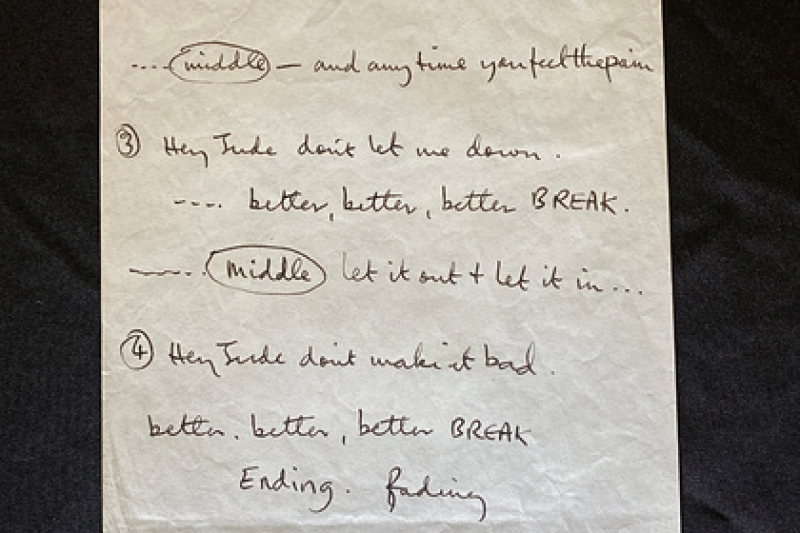 .... middle — and any time you feel the pain
③ Hey Jude don't let me down.
---- better, better, better BREAK.
——.. middle let it out + let it in...
④ Hey Jude don't make it bad.
better. better, better BREAK
Ending. fading